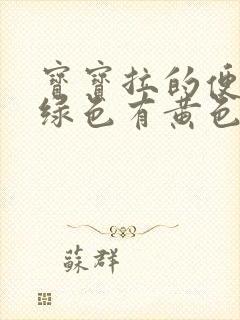 寶寶拉的便
綠色有黃色
蘇群